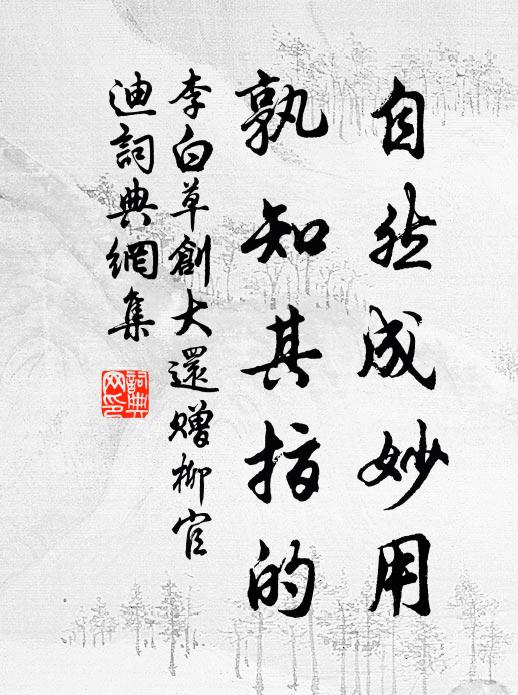 自然成妙用
孰知其指的
李白草創大還贈柳官
迪詞典網集
詞典
网印